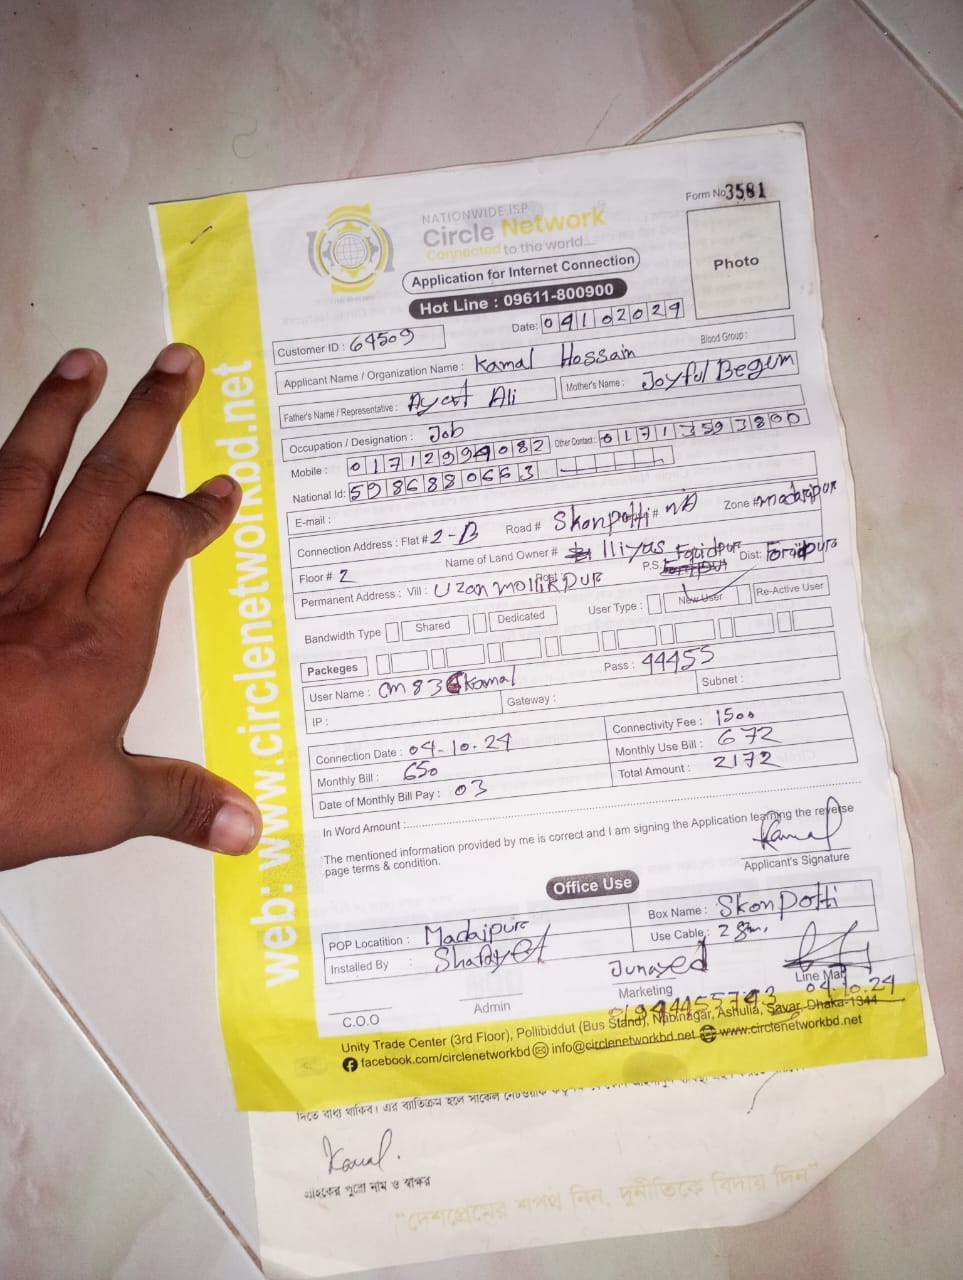 web: www.circlenetworkbd.net
Form No 3581
NATIONWIDE ISP
Circle Network
Connected to the world...
Application for Internet Connection
Hot Line : 09611-800900
Photo
Customer ID : 64509
Date: 04102024
Applicant Name / Organization Name : Kamal Hossain
Blood Group :
Father's Name / Representative : Ayest Ali
Mother's Name : Joyful Begum
Occupation / Designation : Job
Mobile : 01712994082 Other Contact : 01713593800
National Id: 5986880663
E-mail :
Connection Address : Flat # 2-B Road # Skonpotti # NB Zone # madaripur
Floor # 2 Name of Land Owner # Iliyas
Permanent Address : Vill : Uzan mollikpur P.S. Faridpur Dist: Faridpur
Bandwidth Type Shared Dedicated User Type : New User Re-Active User
Packeges
User Name : cm836kamal Pass : 44455
IP : Gateway : Subnet :
Connection Date : 04-10.24 Connectivity Fee : 1500
Monthly Bill : 650 Monthly Use Bill : 672
Date of Monthly Bill Pay : 03 Total Amount : 2172
In Word Amount :
The mentioned information provided by me is correct and I am signing the Application learning the reverse
page terms & condition.
Kamal
Applicant's Signature
Office Use
POP Locatition : Madaipur Box Name : Skonpotti
Installed By : Shafayet Use Cable : 28m.
Junayed
C.O.O Admin Marketing Line Man
04.10.24
01944455743
Unity Trade Center (3rd Floor), Pollibiddut (Bus Stand), Nabinagar, Ashulia, Savar, Dhaka-1344
facebook.com/circlenetworkbd info@circlenetworkbd.net www.circlenetworkbd.net
দিতে বাধ্য থাকিব। এর ব্যতিক্রম হলে সার্কেল নেটওয়ার্ক
Kamal.
গ্রাহকের পুরো নাম ও স্বাক্ষর
"দেশপ্রেমের শপথ নিন, দুর্নীতিকে বিদায় দিন"